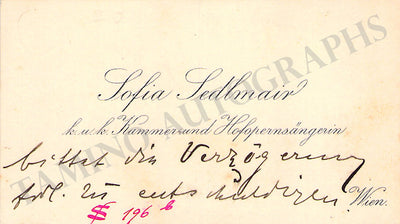 Sofia Sedlmair
k. u. k. Kammer- und Hofopernsängerin
bittet die Verzögerung
frdl. zu entschuldigen
Wien.
$ 196 b
TAMINO AUTOGRAPHS